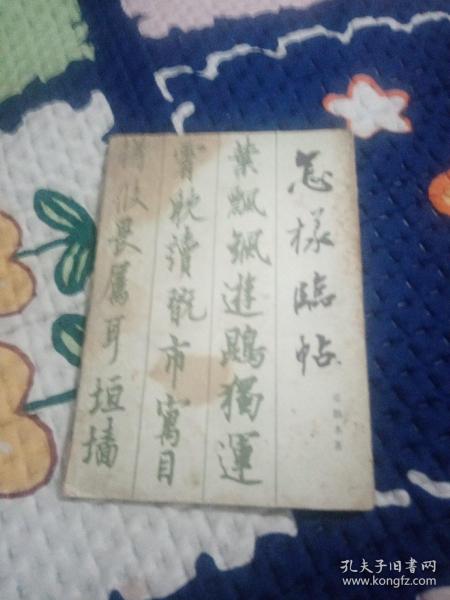 怎樣臨帖
葉飄飖遊鵾獨運
霄耽讀翫市寓目
攸畏屬耳垣墻
孔夫子旧书网
www.kongfz.com